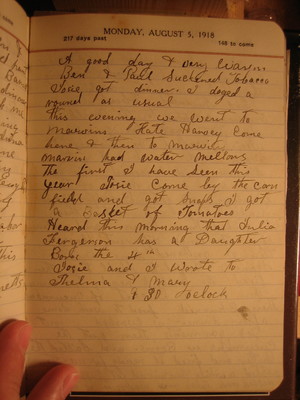 MONDAY, AUGUST 5, 1918
217 days past
148 to come
A good day & very warm
Ben & Paul Suckered Tobacco
Josie got dinner. I doged a
round as usual
this evening we went to
Marvins Kate Harvey Come
here & then to Marvin
Marvin had water mellons
the first I have seen this
year Josie Come by the
field and got I got
a Basket of Tomatoes
Heard this morning that Julia
Fergerson has a Daughter
Born the 4th
Josie and I wrote to
Thelma & Mary
oclock